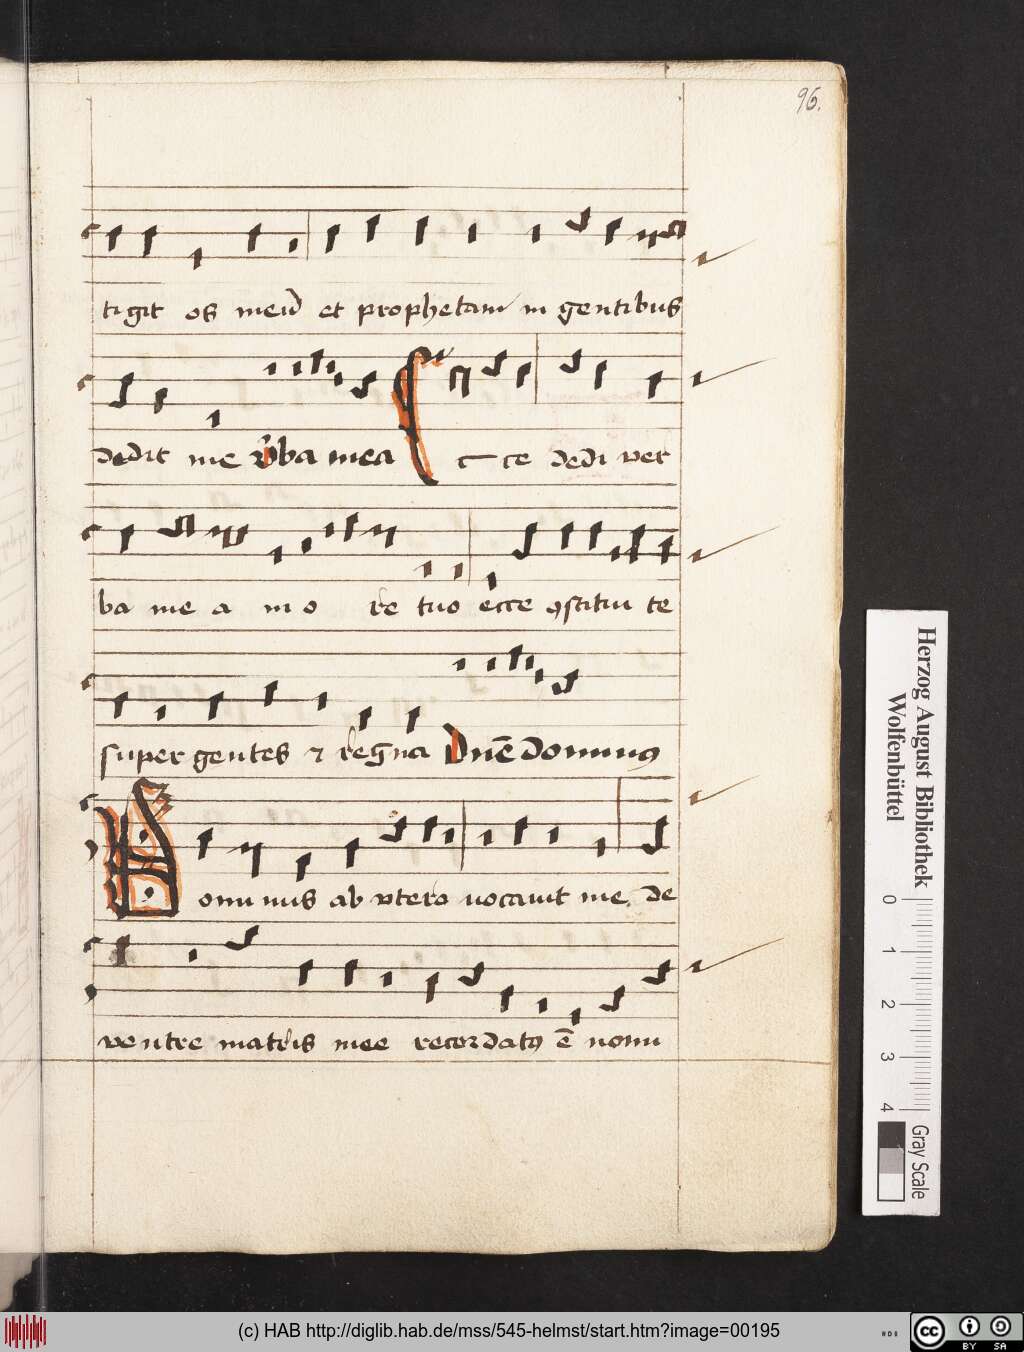 96.
tigit os meu̅ et prophetam in gentibus
dedit me v̅ba mea Ecce dedi ver
ba me a in o re tuo ecce ꝯstitui te
super gentes ⁊ regna D̅ne̅ dominꝰ
Dominus ab vtero vocauit me de
ventre matris mee recordatꝰ e̅ nomi
Herzog August Bibliothek
Wolfenbüttel
0 1 2 3 4
Gray Scale
(c) HAB http://diglib.hab.de/mss/545-helmst/start.htm?image=00195
cc BY SA